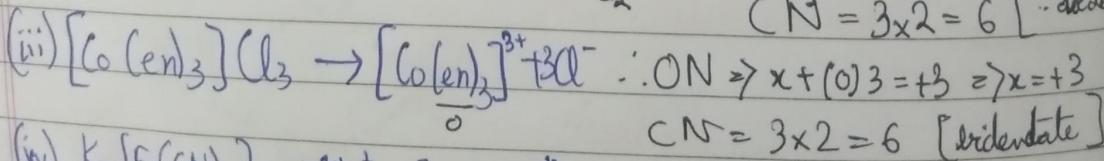 CN = 3x2 = 6 [
(iii) [Co(en)3]Cl3 → [Co(en)3]3+ + 3Cl- ∴ ON ⇒ x + (0)3 = +3 ⇒ x = +3
0
CN = 3x2 = 6 [bidendate]
(iv) K